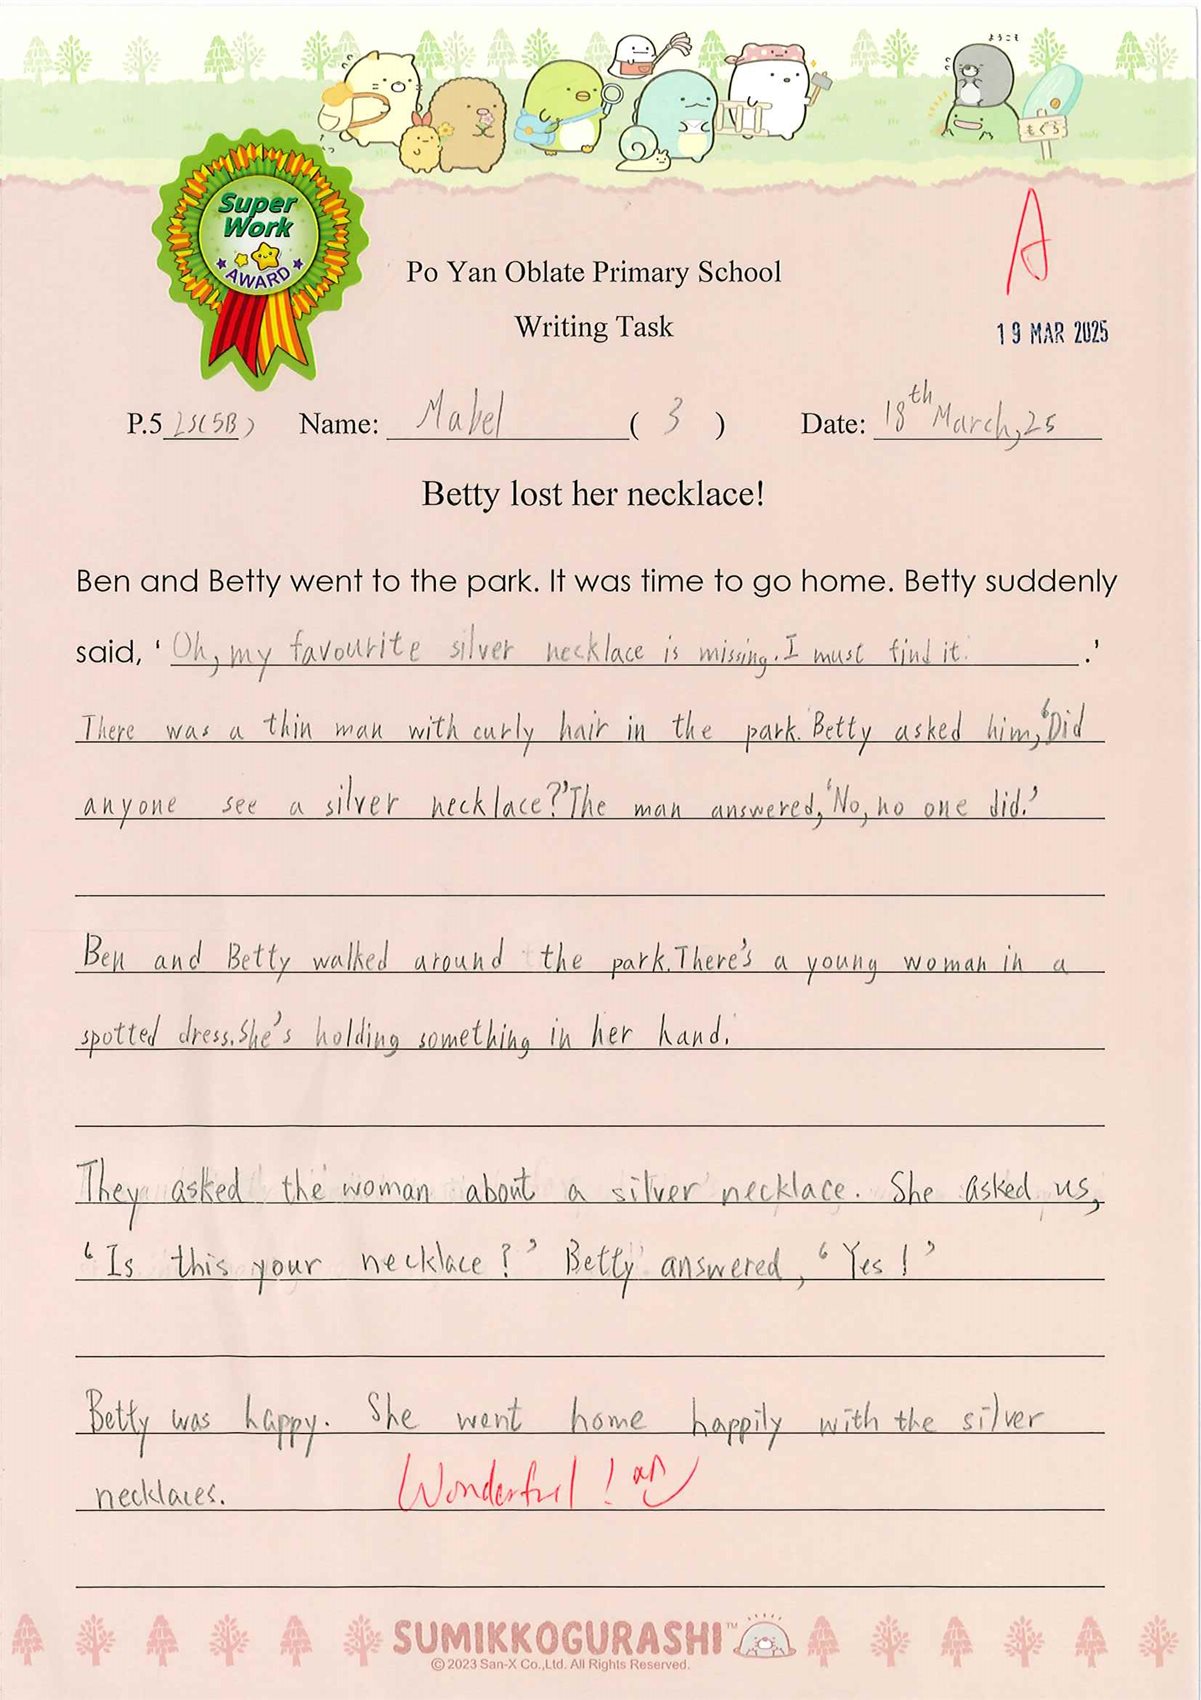 ようこそ
もぐら
Super
Work
AWARD
A
Po Yan Oblate Primary School
Writing Task
19 MAR 2025
P.5 2S(5B) Name: Mabel ( 3 ) Date: 18th March,25
Betty lost her necklace!
Ben and Betty went to the park. It was time to go home. Betty suddenly
said, ‘ Oh, my favourite silver necklace is missing. I must find it. .’
There was a thin man with curly hair in the park. Betty asked him, ‘Did
anyone see a silver necklace?’ The man answered, ‘No, no one did.’
Ben and Betty walked around the park. There's a young woman in a
spotted dress. She's holding something in her hand.
They asked the woman about a silver necklace. She asked us,
‘Is this your necklace?’ Betty answered, ‘Yes!’
Betty was happy. She went home happily with the silver
necklaces.
Wonderful!
SUMIKKOGURASHI™
©2023 San-X Co.,Ltd. All Rights Reserved.